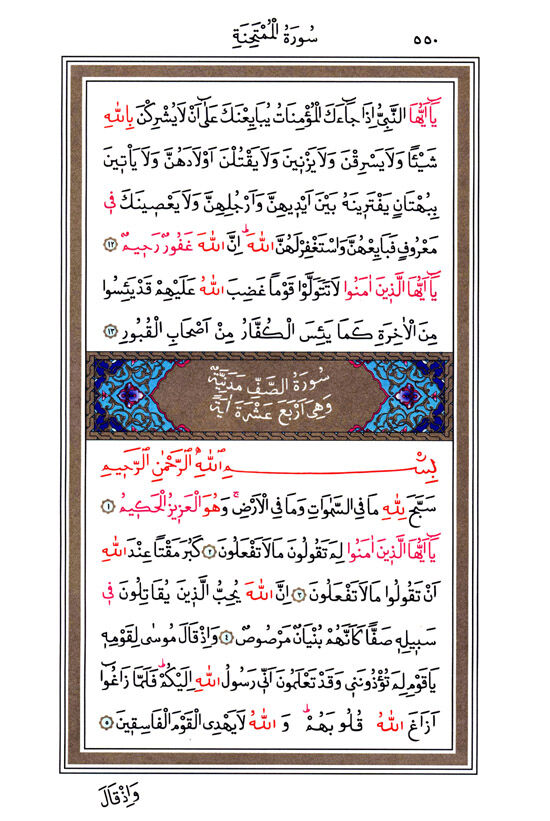 ٥٥٠
سُورَةُ الْمُمْتَحِنَةِ
يَٓا اَيُّهَا النَّبِيُّ اِذَا جَٓاءَكَ الْمُؤْمِنَاتُ يُبَايِعْنَكَ عَلٰٓى اَنْ لَا يُشْرِكْنَ بِاللّٰهِ
شَيْـًٔا وَلَا يَسْرِقْنَ وَلَا يَزْن۪ينَ وَلَا يَقْتُلْنَ اَوْلَادَهُنَّ وَلَا يَأْت۪ينَ
بِبُهْتَانٍ يَفْتَر۪ينَهُ بَيْنَ اَيْد۪يهِنَّ وَاَرْجُلِهِنَّ وَلَا يَعْص۪ينَكَ ف۪ي
مَعْرُوفٍ فَبَايِعْهُنَّ وَاسْتَغْفِرْ لَهُنَّ اللّٰهَۜ اِنَّ اللّٰهَ غَفُورٌ رَح۪يمٌ ﴿١٢﴾
يَٓا اَيُّهَا الَّذ۪ينَ اٰمَنُوا لَا تَتَوَلَّوْا قَوْمًا غَضِبَ اللّٰهُ عَلَيْهِمْ قَدْ يَئِسُوا
مِنَ الْاٰخِرَةِ كَمَا يَئِسَ الْكُفَّارُ مِنْ اَصْحَابِ الْقُبُورِ ﴿١٣﴾
سُورَةُ الصَّفِّ مَدَنِيَّةٌ
وَهِيَ اَرْبَعَ عَشْرَةَ اٰيَةً
بِسْمِ اللّٰهِ الرَّحْمٰنِ الرَّح۪يمِ
سَبَّحَ لِلّٰهِ مَا فِي السَّمٰوَاتِ وَمَا فِي الْاَرْضِۚ وَهُوَ الْعَز۪يزُ الْحَك۪يمُ ﴿١﴾
يَٓا اَيُّهَا الَّذ۪ينَ اٰمَنُوا لِمَ تَقُولُونَ مَا لَا تَفْعَلُونَ ﴿٢﴾ كَبُرَ مَقْتًا عِنْدَ اللّٰهِ
اَنْ تَقُولُوا مَا لَا تَفْعَلُونَ ﴿٣﴾ اِنَّ اللّٰهَ يُحِبُّ الَّذ۪ينَ يُقَاتِلُونَ ف۪ي
سَب۪يلِه۪ صَفًّا كَاَنَّهُمْ بُنْيَانٌ مَرْصُوصٌ ﴿٤﴾ وَاِذْ قَالَ مُوسٰى لِقَوْمِه۪
يَا قَوْمِ لِمَ تُؤْذُونَن۪ي وَقَدْ تَعْلَمُونَ اَنّ۪ي رَسُولُ اللّٰهِ اِلَيْكُمْۜ فَلَمَّا زَاغُٓوا
اَزَاغَ اللّٰهُ قُلُوبَهُمْۜ وَاللّٰهُ لَا يَهْدِي الْقَوْمَ الْفَاسِق۪ينَ ﴿٥﴾
وَاِذْ قَالَ